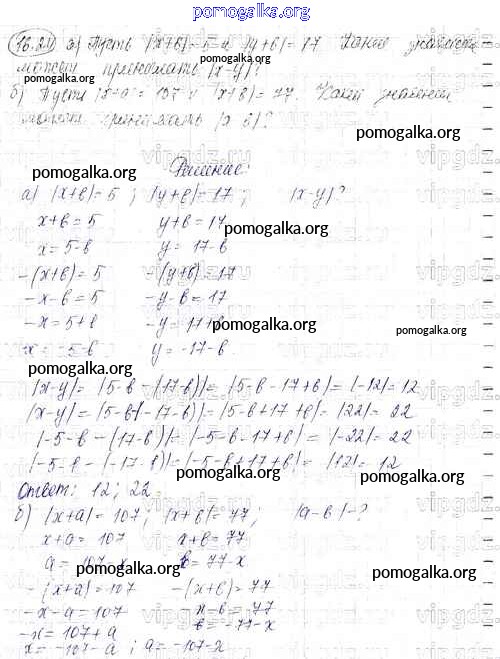 pomogalka.org
16.20 а) Пусть |x+в|=5 и |y+в|=17. Какие значения
может принимать |x-y|?
pomogalka.org
б) Пусть |x+a|=107 и |x+в|=77. Какие значения
может принимать |a-в|?
pomogalka.org
Решение:
pomogalka.org
а) |x+в|=5 ; |y+в|=17 ; |x-y|?
x+в=5 y+в=17
pomogalka.org
x=5-в y=17-в
-(x+в)=5 -(y+в)=17
-x-в=5 -y-в=17
-x=5+в -y=17+в
pomogalka.org pomogalka.org
x=-5-в y=-17-в
pomogalka.org
|x-y|=|5-в-(17-в)|=|5-в-17+в|=|-12|=12
|x-y|=|5-в-(-17-в)|=|5-в+17+в|=|22|=22
|-5-в-(17-в)|=|-5-в-17+в|=|-22|=22
|-5-в-(-17-в)|=|-5-в+17+в|=|12|=12
pomogalka.org pomogalka.org
Ответ: 12; 22
б) |x+a|=107 ; |x+в|=77 ; |a-в|-?
pomogalka.org
x+a=107 x+в=77
a=107-x в=77-x
pomogalka.org
-(x+a)=107 -(x+в)=77
-x-a=107 -x-в=77
-x=107+a в=-77-x
x=-107-a ; a=-107-x
pomogalka.org